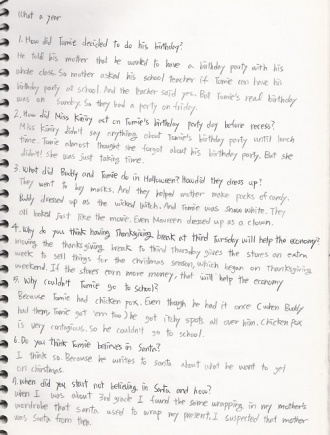 What a year
1. How did Tomie decided to do his birthday?
He told his mother that he wanted to have a birthday party with his
whole class. So mother asked his school teacher if Tomie can have his
birthday party at school. And the teacher said yes. But Tomie's real birthday
was on sunday. So they had a party on friday.
2. How did Miss Kiniry act on Tomie's birthday party day before recess?
Miss Kiniry didn't say anything about Tomie's birthday party until lunch
time. Tomie almost thought she forgot about his birthday party. But she
didn't! She was just taking time.
3. What did Buddy and Tomie do in Halloween? How did they dress up?
They went to buy masks. And they helped mother make packs of candy.
Buddy dressed up as the wicked witch. And Tomie was snow white. They
all looked just like the movie. Even Maureen dressed up as a clown.
4. Why do you think having Thanksgiving break at third Tursday will help the economy?
Moving the thanksgiving break to third thursday gives the stores an extra
week to sell things for the christmas season, which began on thanksgiving
weekend. If the stores earn more money, that will help the economy
5. Why couldn't Tomie go to school?
Because Tomie had chicken pox. Even though he had it once Buddy
had them, Tomie got 'em too. He got itchy spots all over him. Chicken pox
is very contagious. So he couldn't go to school.
6. Do you think Tomie believes in santa?
I think so. Because he writes to santa about what he want to get
on christmas.
7. when did you start not believing in Santa and how?
when I was about 3rd grade I found the same wrapping in my mother's
wardrobe that santa used to wrap my present. I suspected that mother
was Santa from then.